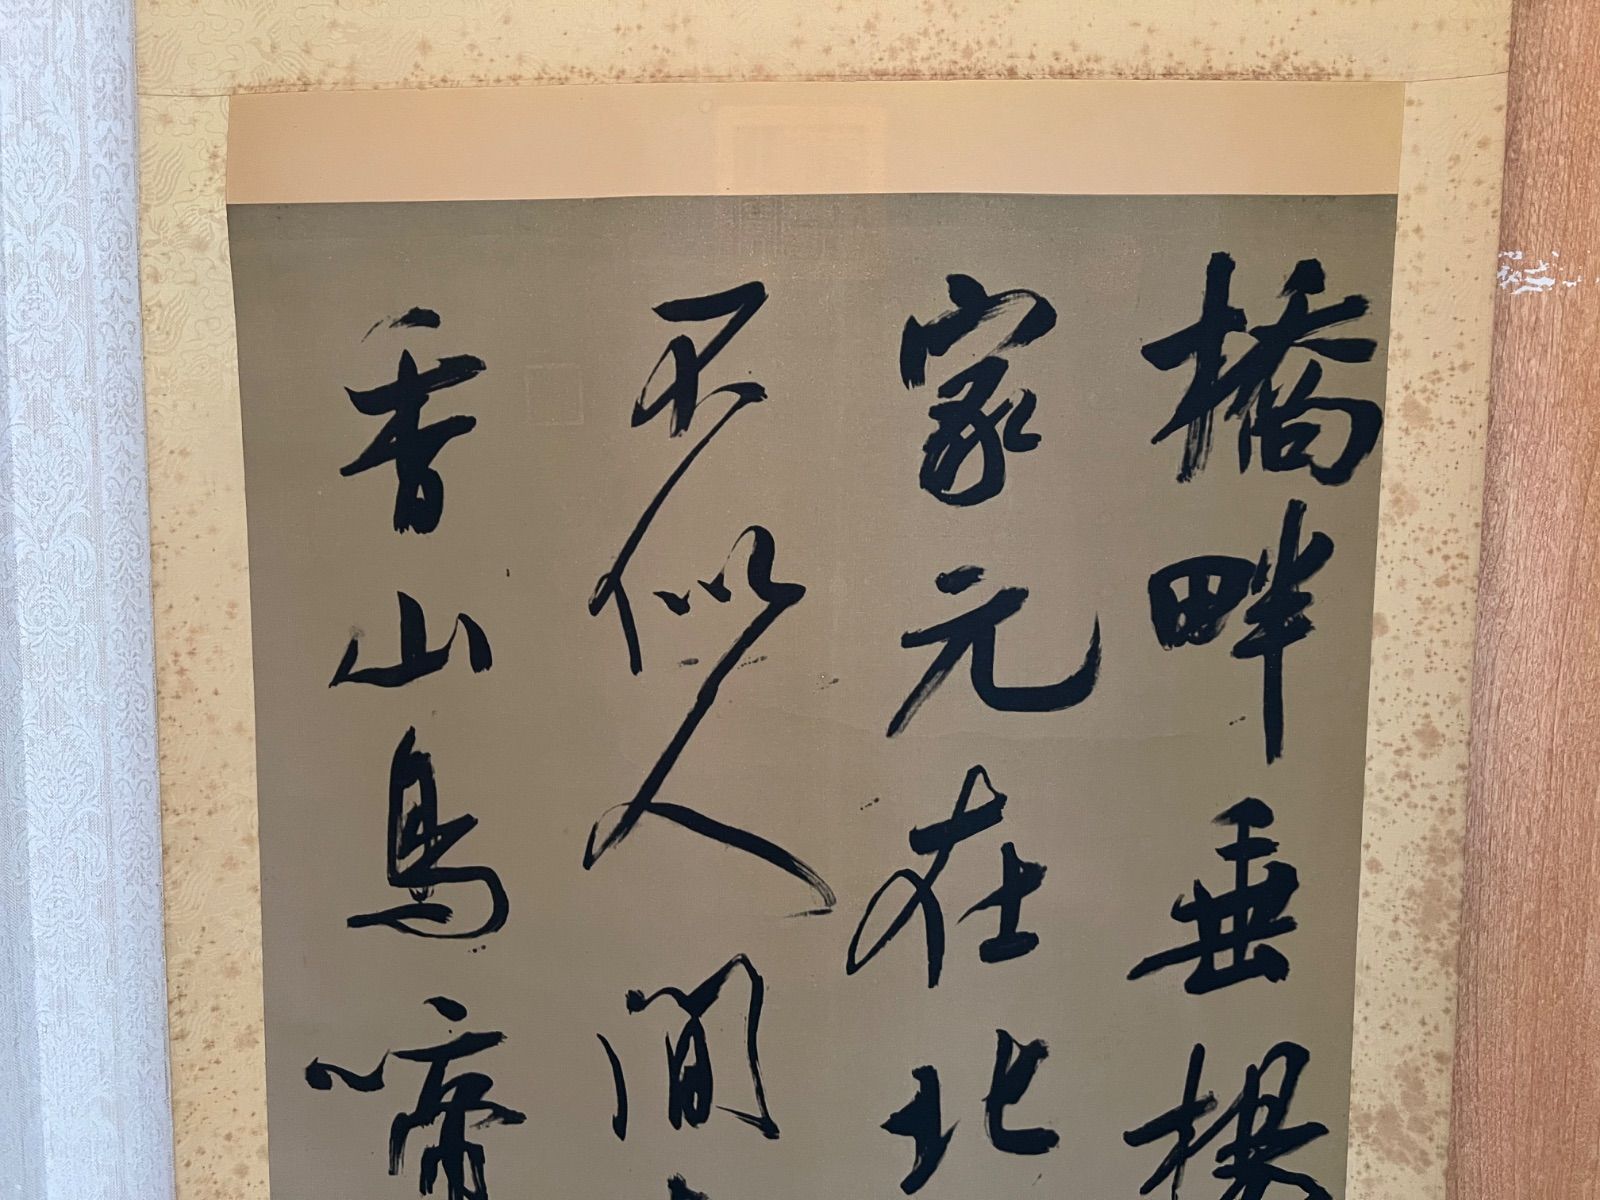 橋畔垂楊
家元在北
不似人間
香山鳥啼